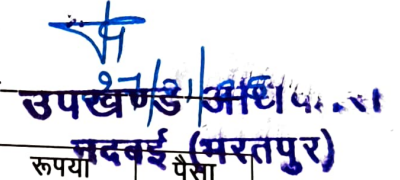 उपखण्ड अधिकारी
नदबई (भरतपुर)
रूपया पैसा